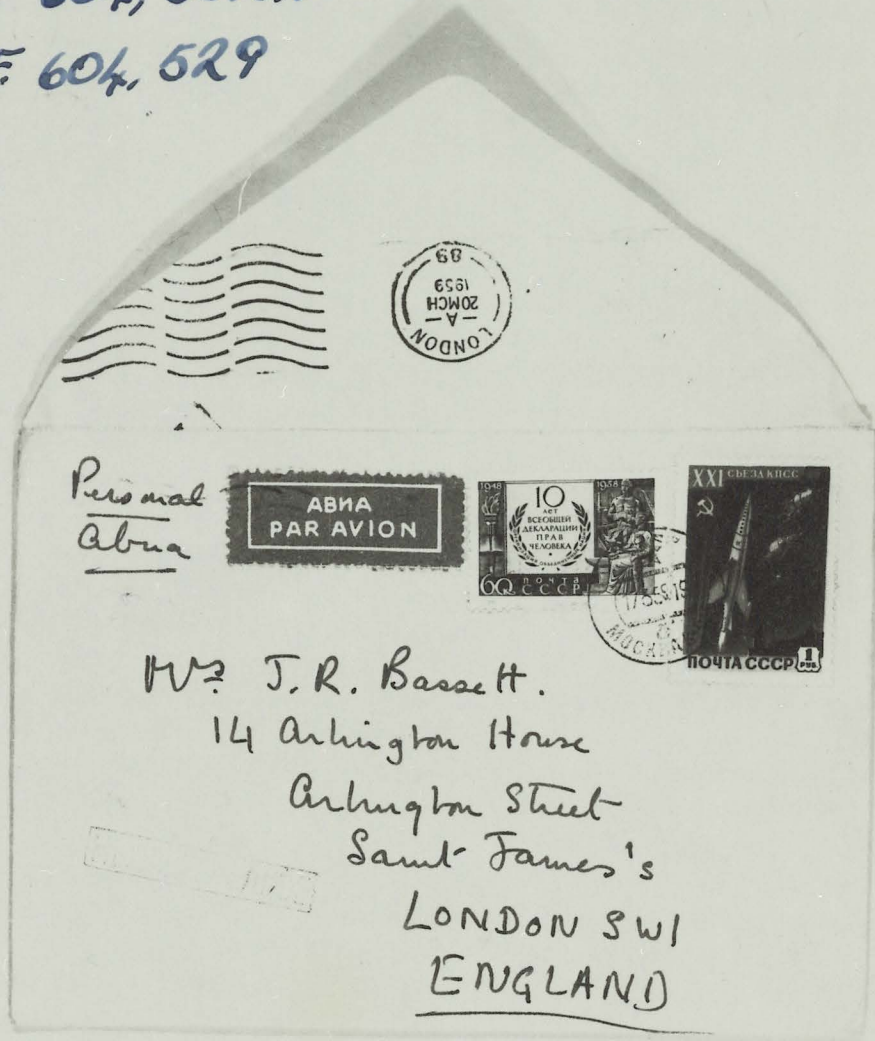 604, 529
LONDON
A
20 MCH
1959
89
Personal
Авиа
АВИА
PAR AVION
1948
1958
10
лет
ВСЕОБЩЕЙ
ДЕКЛАРАЦИИ
ПРАВ
ЧЕЛОВЕКА
60 ПОЧТА
СССР
XXI СЪЕЗД КПСС
ПОЧТА СССР 1 РУБ
МОСКВА
Mrs J. R. Bassett.
14 Arlington House
Arlington Street
Saint James's
LONDON SW1
ENGLAND